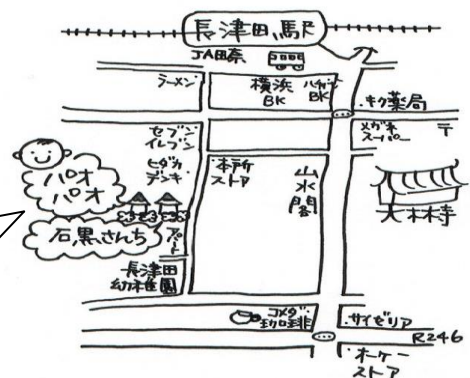 長津田駅
JA田奈
ラーメン
横浜
BK
ハザマ
BK
キク薬局
メガネ
スーパー
〒
セブン
イレブン
ヒダカ
デンキ
本所
ストア
山水閣
大林寺
パオ
パオ
石黒さんち
アパート
長津田
幼稚園
コメダ
珈琲
サイゼリア
R246
オーケー
ストア